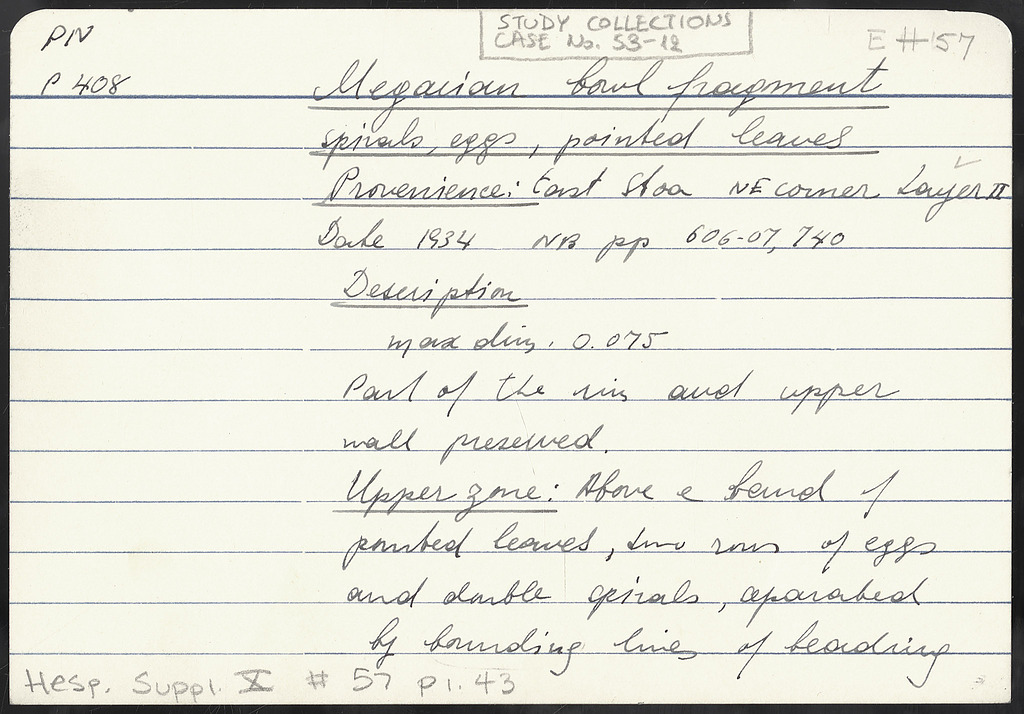 PN
STUDY COLLECTIONS
CASE No. S3-12
E # 57
P 408
Megarian bowl fragment
spirals, eggs, pointed leaves
Provenience: East Stoa NE corner Layer II
Date 1934 NB pp 606-07, 740
Description
max dim. 0.075
Part of the rim and upper
wall preserved.
Upper zone: Above a band of
pointed leaves, two rows of eggs
and double spirals, separated
by bounding lines of beading
Hesp. Suppl. X # 57 pl. 43